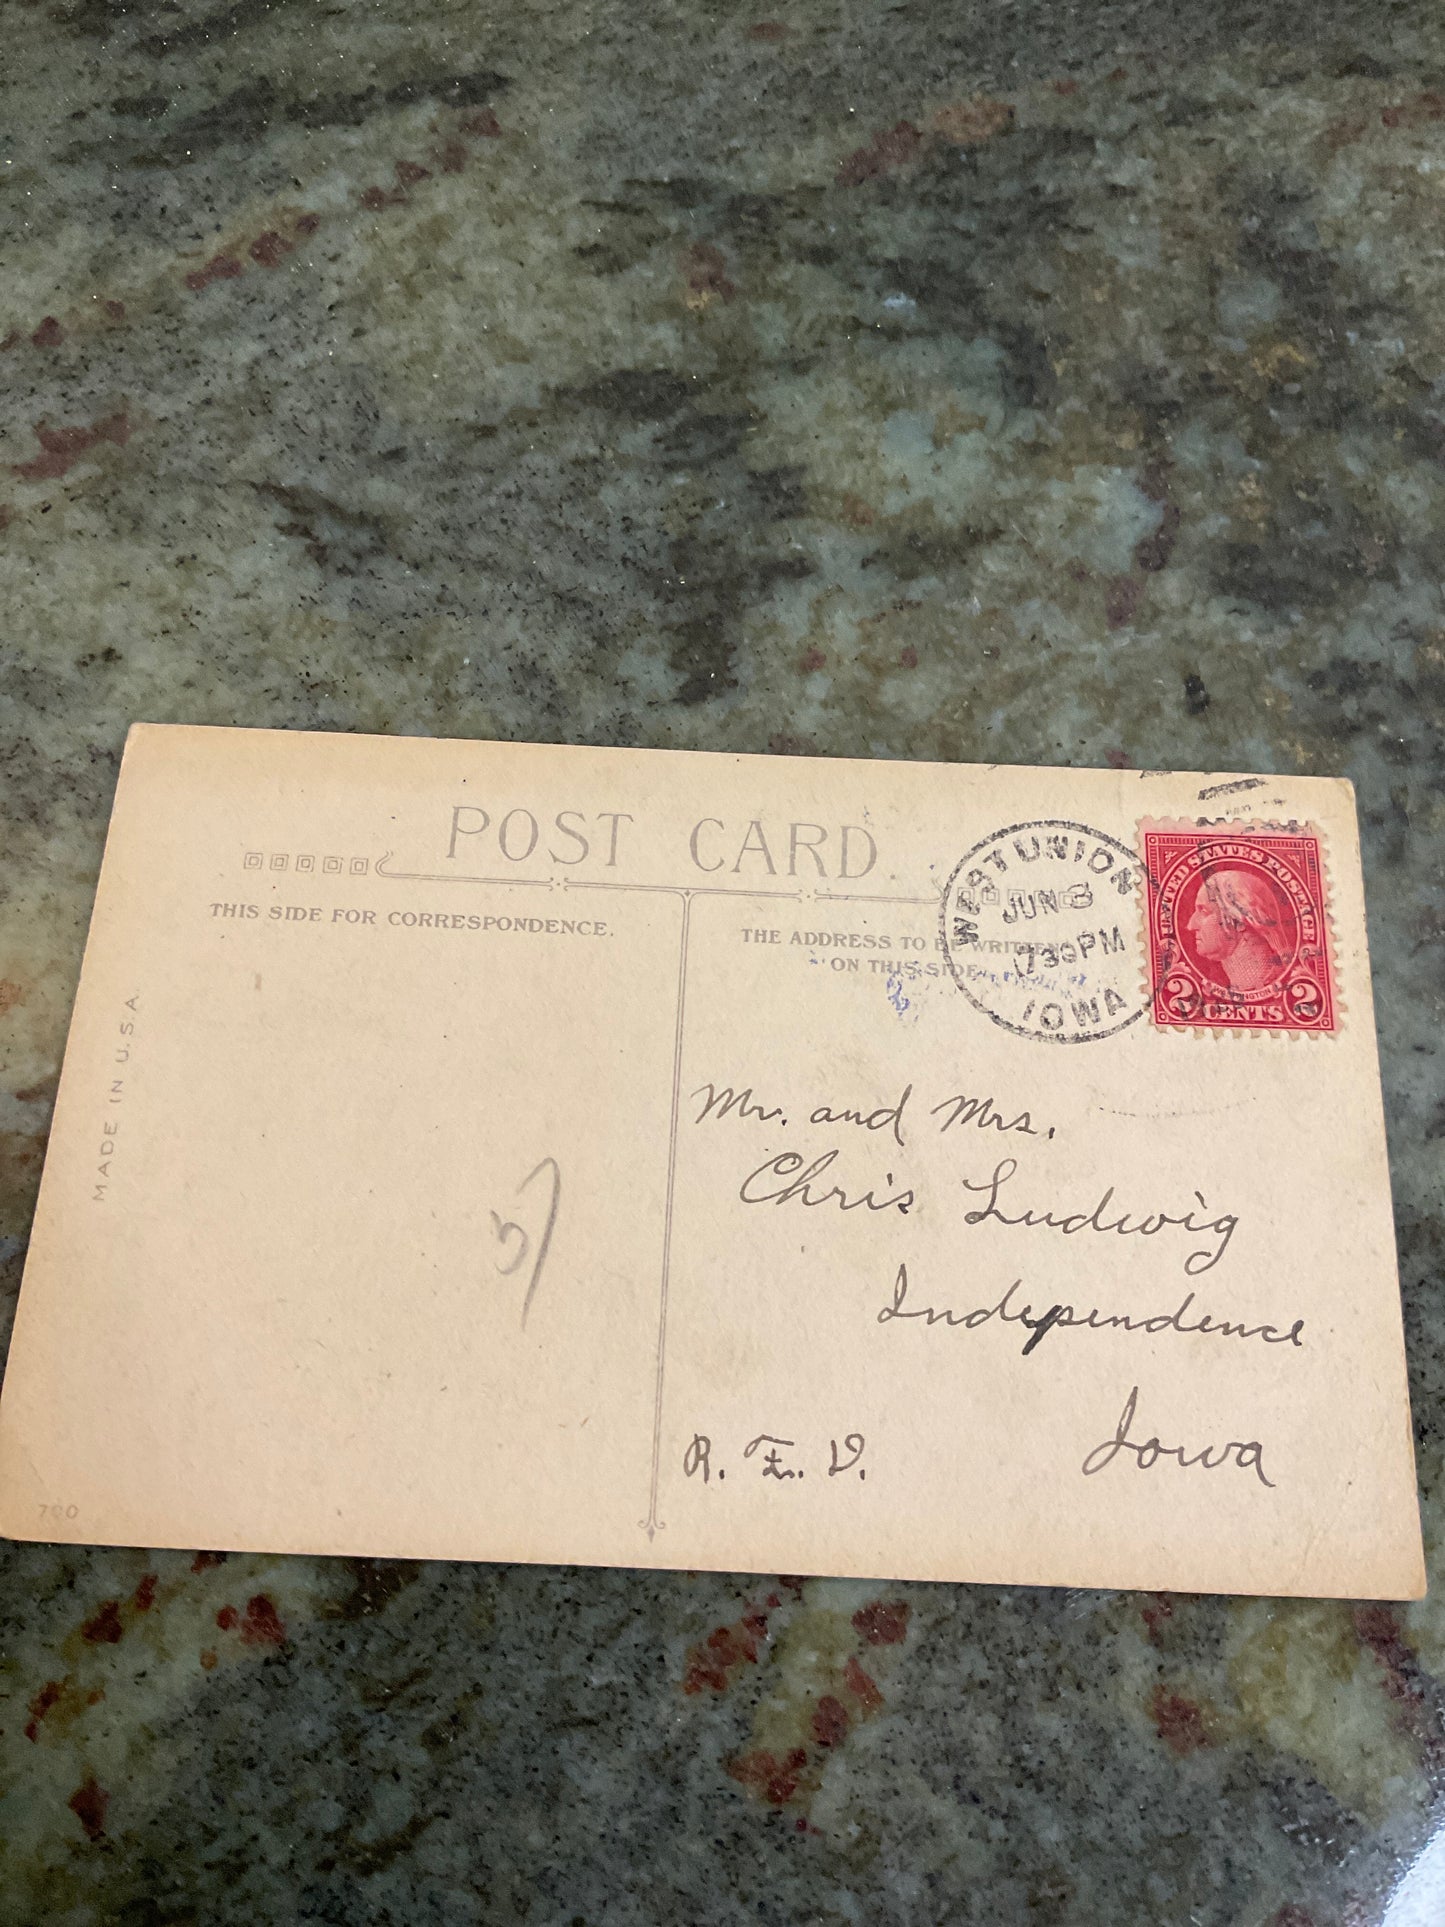 POST CARD.
THIS SIDE FOR CORRESPONDENCE.
THE ADDRESS TO BE WRITTEN
ON THIS SIDE
WEST UNION
JUN 3
730PM
IOWA
UNITED STATES POSTAGE
WASHINGTON
2 CENTS 2
MADE IN U.S.A.
Mr. and Mrs.
Chris Ludwig
Independence
Iowa
R. F. D.
700